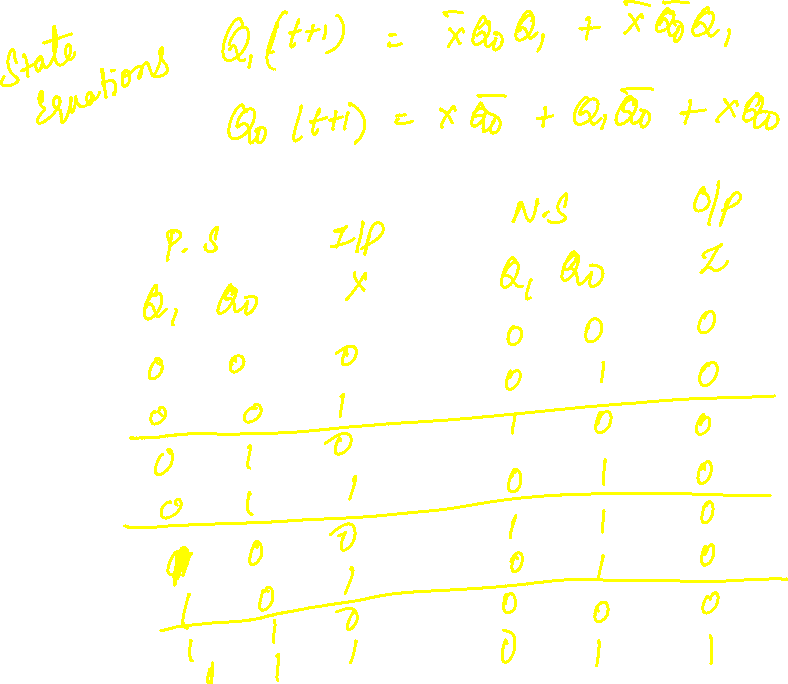 State Equations
Q₁(t+1) = x̅Q₀Q₁ + x̅Q̅₀Q₁
Q₀(t+1) = xQ̅₀ + Q₁Q̅₀ + xQ₀
P.S I/P N.S O/P
Q₁ Q₀ X Q₁ Q₀ Z
0 0 0 0 0 0
0 0 1 0 1 0
0 1 0 1 0 0
0 1 1 0 1 0
1 0 0 1 1 0
1 0 1 0 1 0
1 1 0 0 0 0
1 1 1 0 1 1